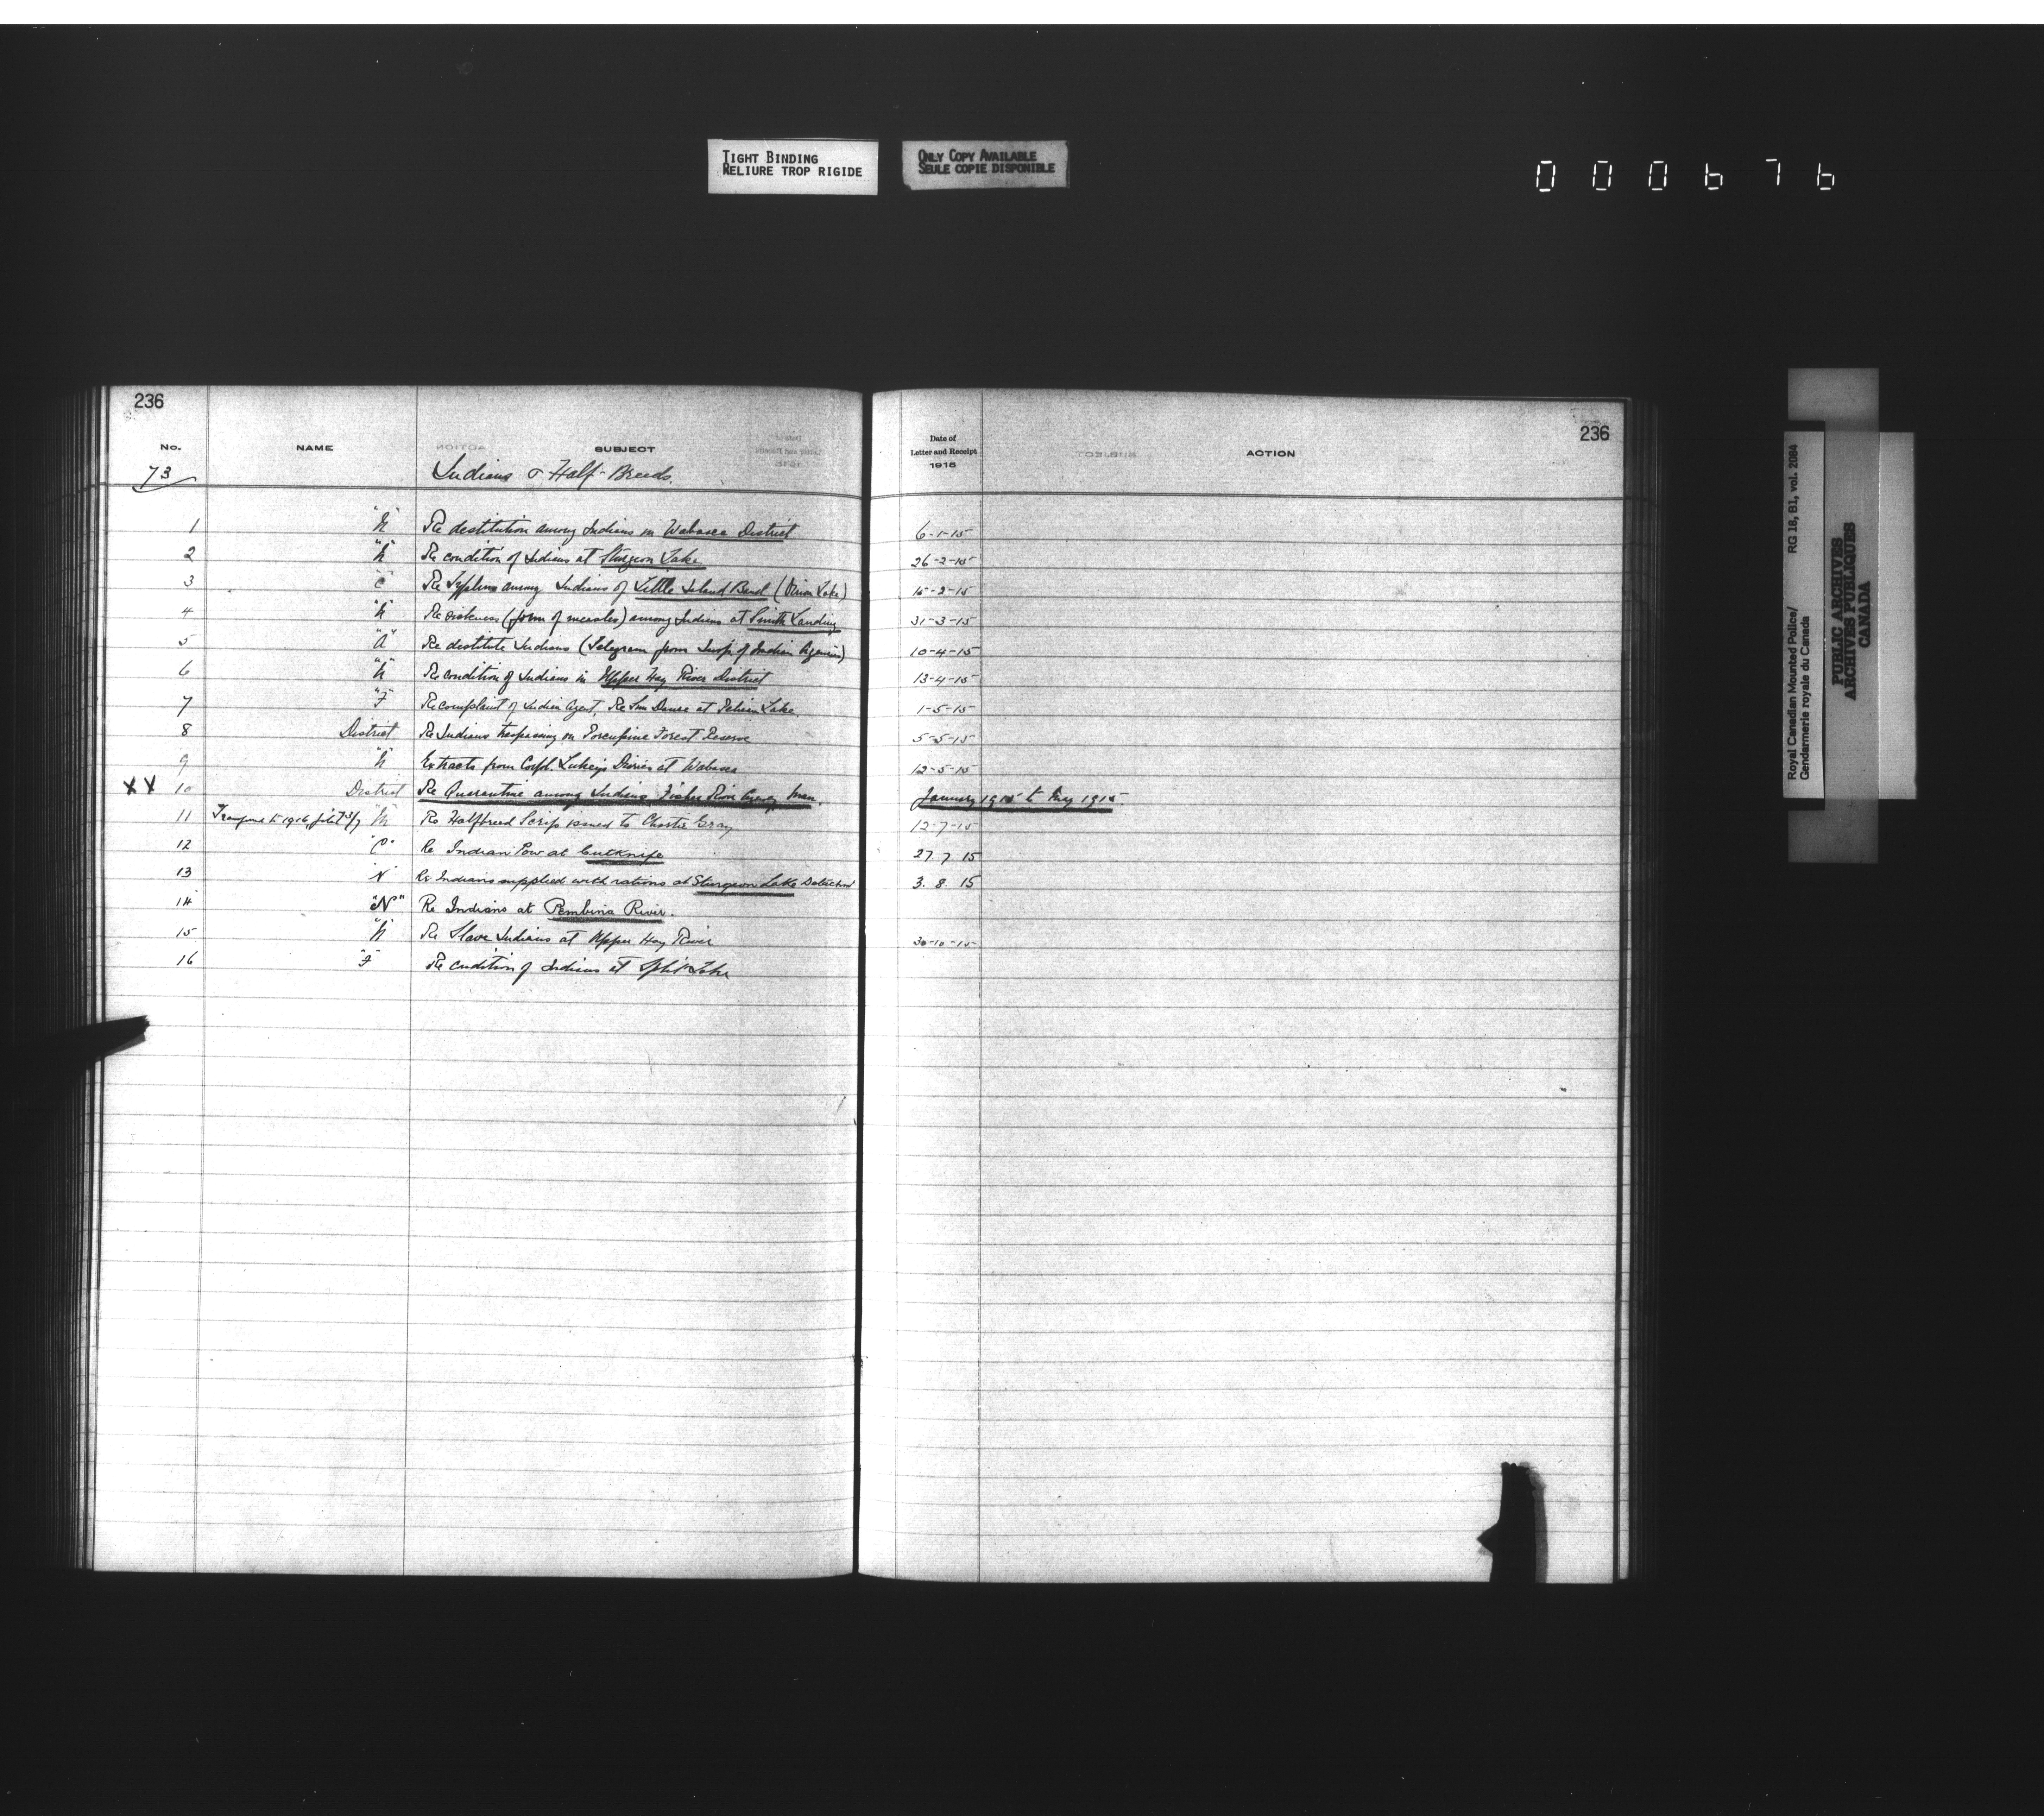 TIGHT BINDING
RELIURE TROP RIGIDE
ONLY COPY AVAILABLE
SEULE COPIE DISPONIBLE
000676
236
No. NAME SUBJECT
73 Indians & Half-Breeds.
1 "N" Re destitution among Indians in Wabasca District
2 "N" Re condition of Indians at Sturgeon Lake
3 "C" Re Syphilis among Indians of Little Island Band (Onion Lake)
4 "N" Re sickness (form of measles) among Indians at Smith Landing
5 "A" Re destitute Indians (Telegram from Insp. of Indian Agencies)
6 "N" Re condition of Indians in Upper Hay River District
7 "F" Re complaint of Indian Agent, Re Sun Dance at Pelican Lake.
8 District Re Indians trespassing on Porcupine Forest Reserve
9 "N" Extracts from Corpl. Diaries at Wabasca
XX 10 District Re Quarantine among Indians, Fisher River Agency Man.
11 to 1916, "N" Re Halfbreed Scrip issued to Charlie Gray
12 "C" Re Indian Pow at Cutknife
13 N Re Indians supplied with rations at Sturgeon Lake Detachmt
14 "N" Re Indians at Pembina River.
15 "N" Re Slave Indians at Upper Hay River
16 "F" Re condition of Indians at Split Lake
236
Date of
Letter and Receipt
1915
ACTION
6-1-15
26-2-15
15-2-15
31-3-15
10-4-15
13-4-15
1-5-15
5-5-15
12-5-15
January 1915 to May 1915
12-7-15
27.7.15
3.8.15
30-10-15
Royal Canadian Mounted Police/ RG 18, B1, vol. 2084
Gendarmerie royale du Canada
PUBLIC ARCHIVES
ARCHIVES PUBLIQUES
CANADA